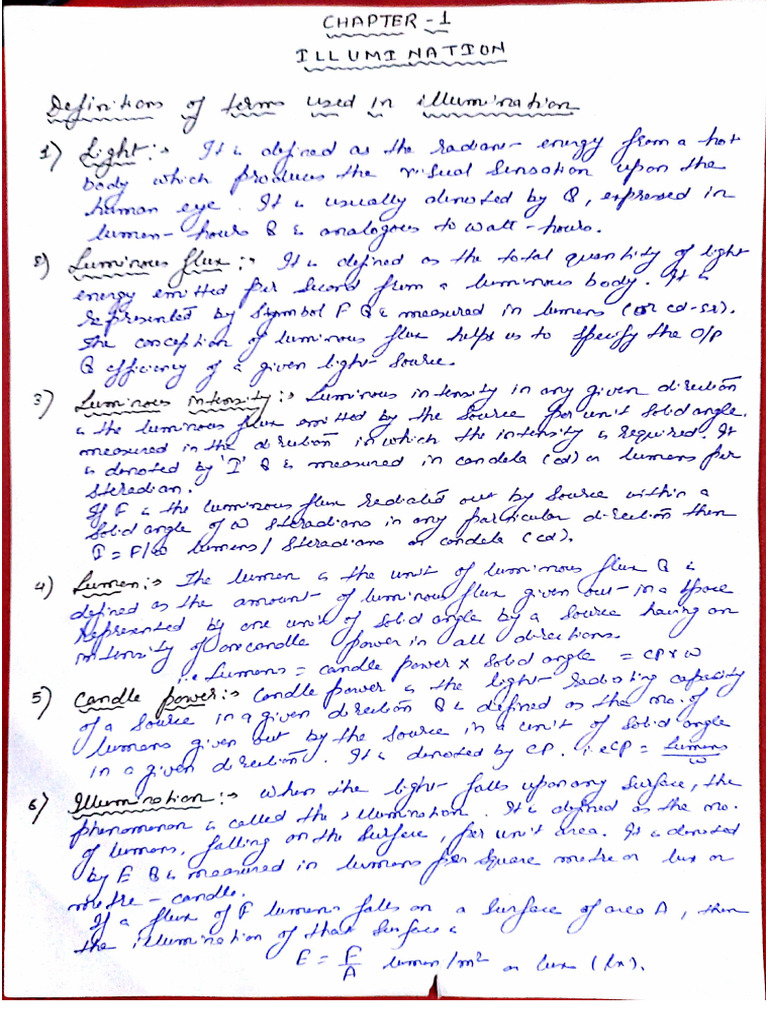 CHAPTER-1
ILLUMINATION
Definitions of terms used in illumination
1) Light:- It is defined as the radiant energy from a hot
body which produces the visual sensation upon the
human eye. It is usually denoted by Q, expressed in
lumen-hours & is analogous to watt-hours.
2) Luminous flux:- It is defined as the total quantity of light
energy emitted per second from a luminous body. It is
represented by symbol F & is measured in lumens (or cd-sr).
The conception of luminous flux helps us to specify the O/P
& efficiency of a given light source.
3) Luminous intensity:- Luminous intensity in any given direction
is the luminous flux emitted by the source per unit solid angle,
measured in the direction in which the intensity is required. It
is denoted by 'I' & is measured in candela (cd) or lumens per
steradian.
If F is the luminous flux radiated out by source within a
solid angle of ω steradians in any particular direction then
I = F/ω lumens/steradians or candela (cd).
4) Lumen:- The lumen is the unit of luminous flux & is
defined as the amount of luminous flux given out in a space
represented by one unit of solid angle by a source having an
intensity of one candle power in all directions.
i.e Lumens = candle power x solid angle = CP x ω
5) Candle power:- Candle power is the light radiating capacity
of a source in a given direction & is defined as the no. of
lumens given out by the source in a unit of solid angle
in a given direction. It is denoted by CP. i.e CP = Lumens/ω
6) Illumination:- When the light falls upon any surface, the
phenomenon is called the illumination. It is defined as the no.
of lumens, falling on the surface, per unit area. It is denoted
by E & is measured in lumens per square metre or lux or
metre-candle.
If a flux of F lumens falls on a surface of area A, then
the illumination of that surface is
E = F/A lumen/m² or lux (lx).